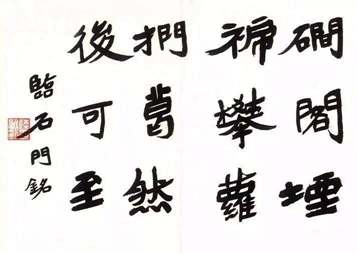 磵閣堙
褫攀蘿
捫葛然
後可至
臨石門銘